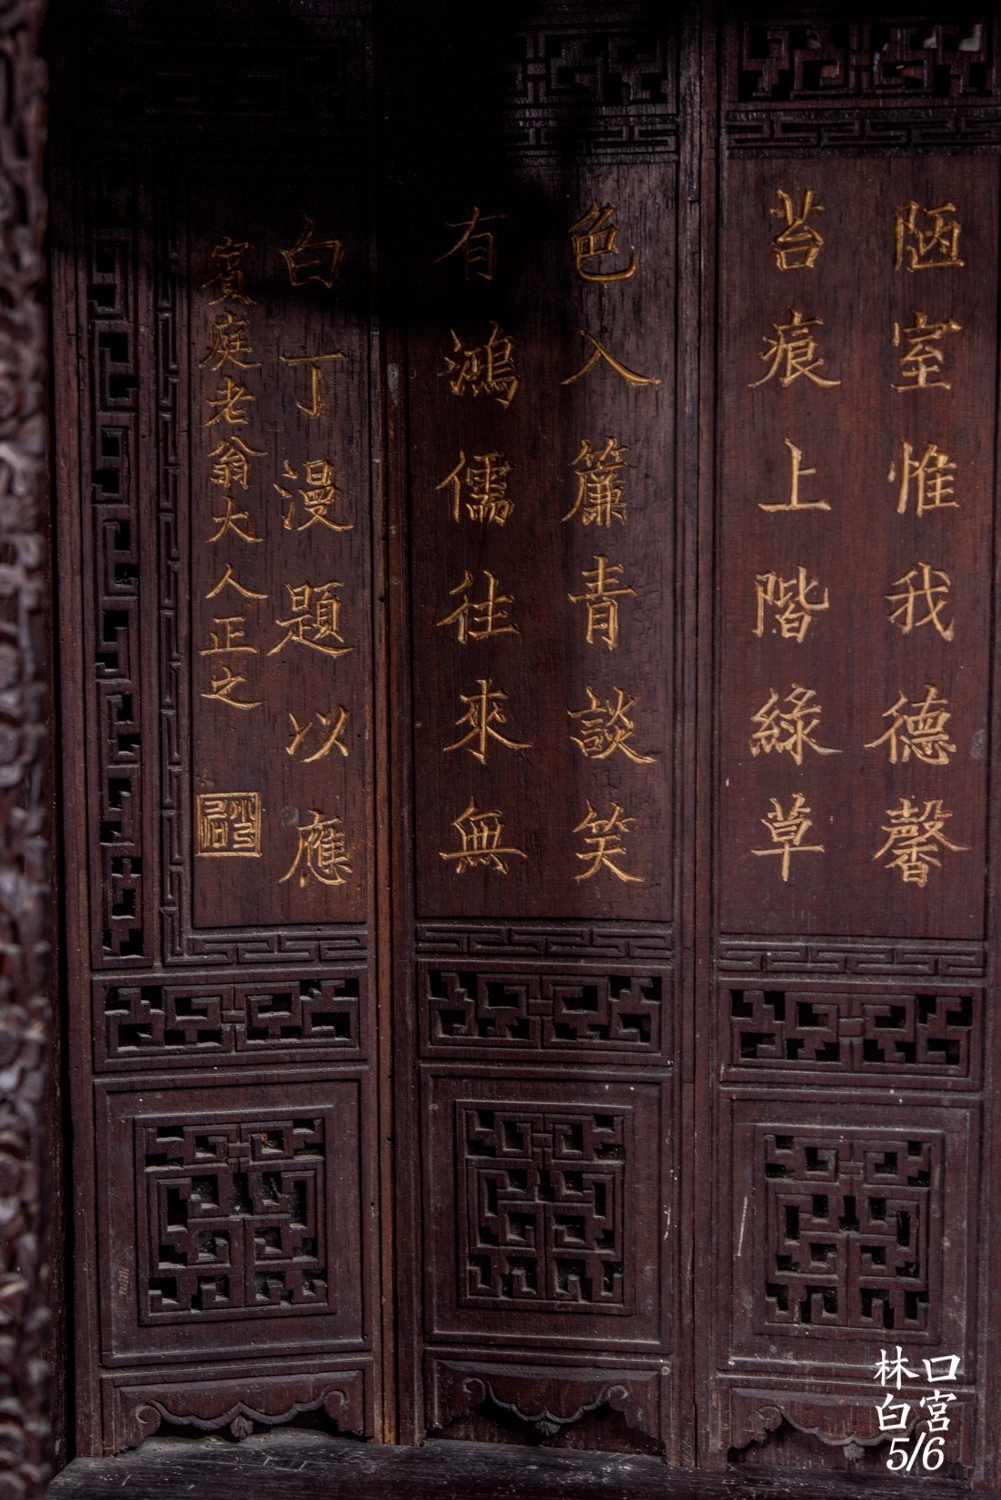 陋室惟我德馨
苔痕上階綠草
色入簾青談笑
有鴻儒往來無
白丁漫題以應
賓庭老翁大人正之
林口
白宮
5/6